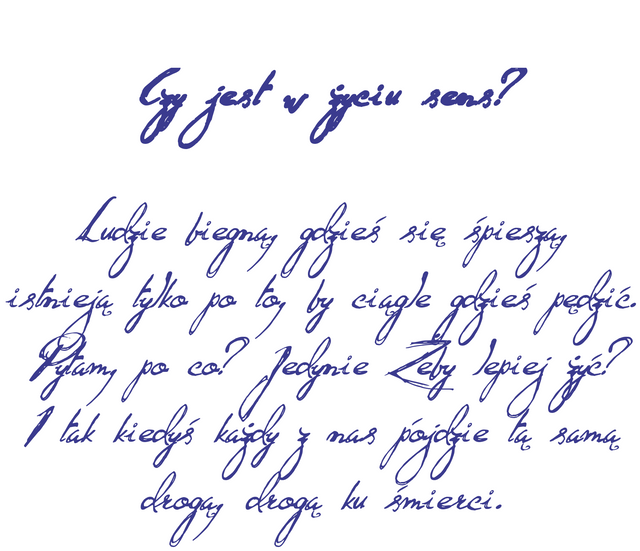 Czy jest w życiu sens?
Ludzie biegną, gdzieś się śpieszą,
istnieją tylko po to, by ciągle gdzieś pędzić.
Pytam, po co? Jedynie Żeby lepiej żyć?
I tak kiedyś każdy z nas pójdzie tą samą
drogą, drogą ku śmierci.